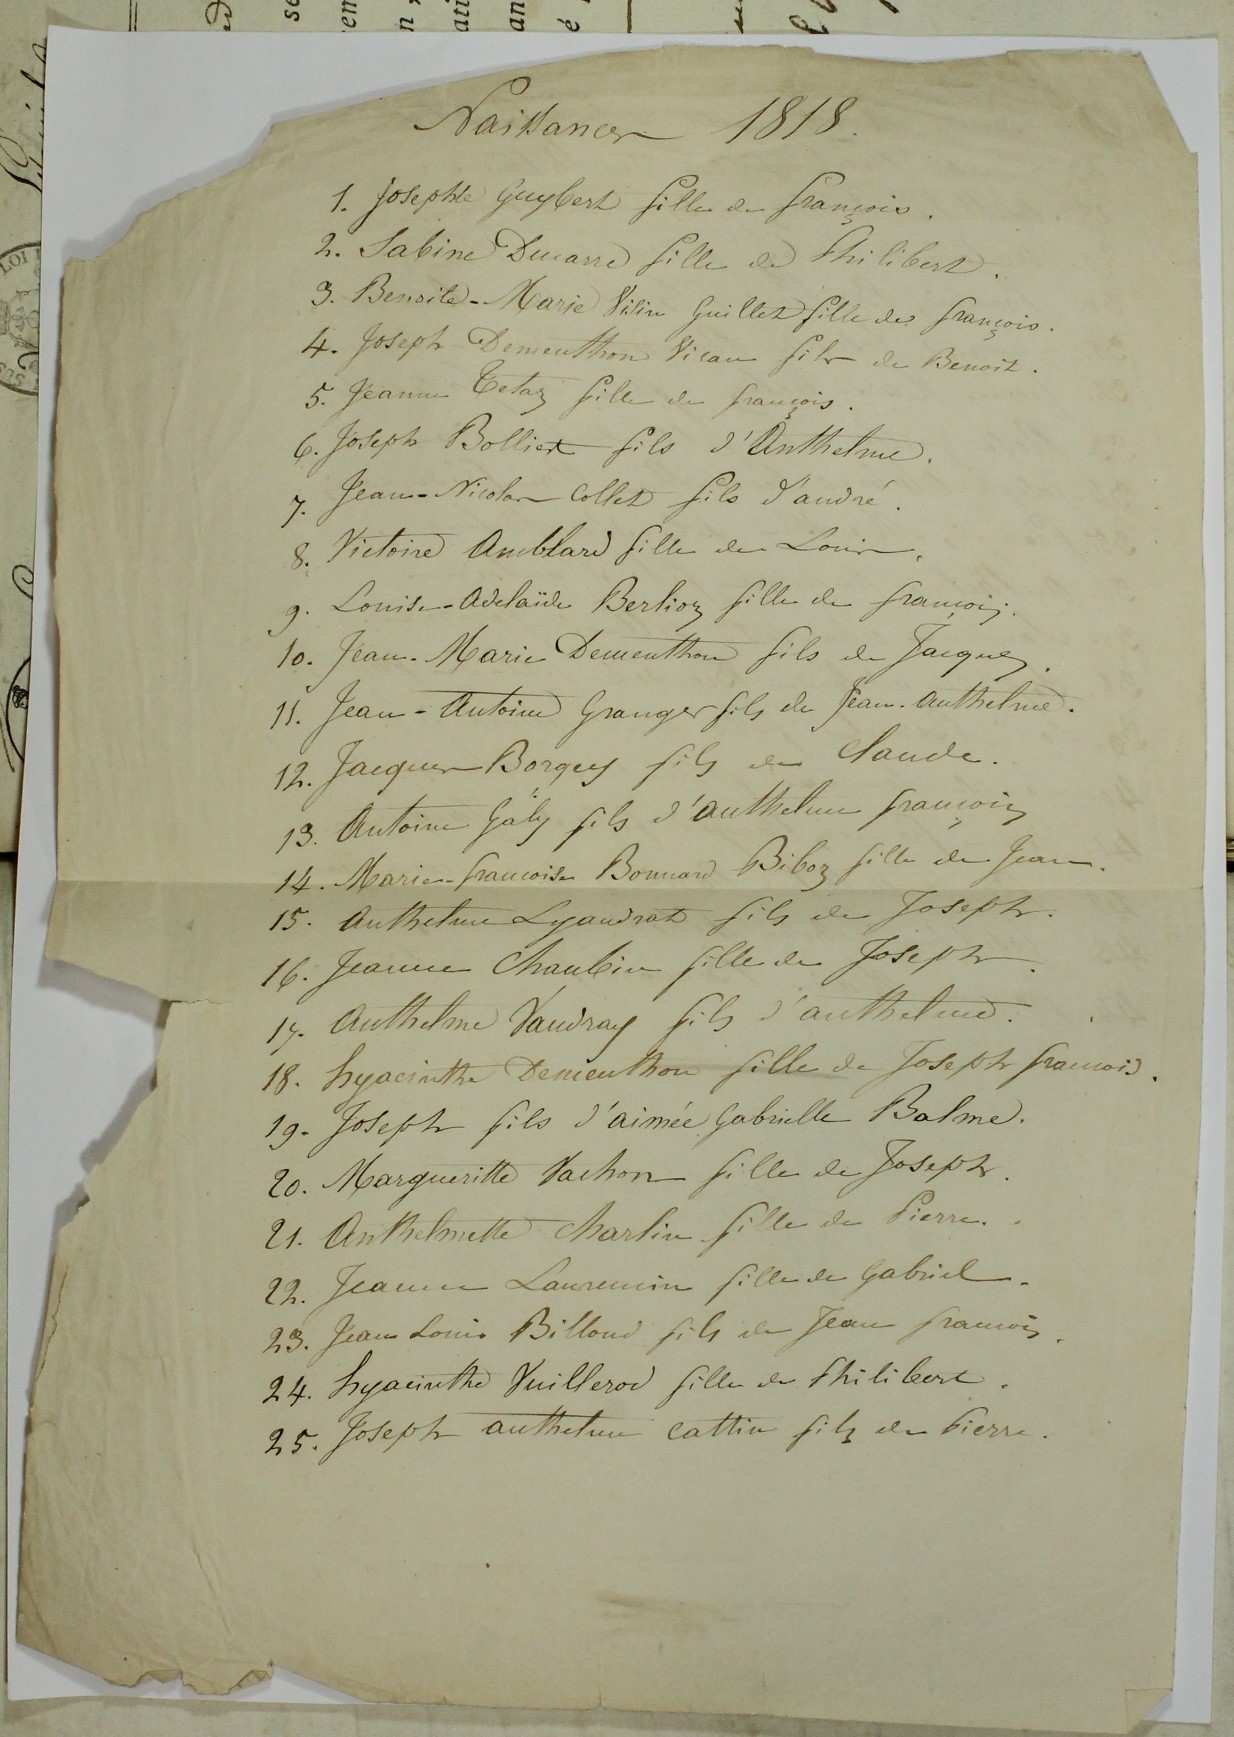 Naissances 1818.
1. Josephte Guybert fille de françois.
2. Sabine Ducarre fille de Philibert.
3. Benoite-Marie Guillet fille de françois.
4. Joseph Dementhon fils de Benoit.
5. Jeanne Tetaz fille de françois.
6. Joseph Bolliet fils d'Anthelme.
7. Jean-Nicolas Collet fils d'andré.
8. Victoire Amblard fille de Louis.
9. Louise-Adelaïde Berlioz fille de françois.
10. Jean-Marie Dementhon fils de Jacques.
11. Jean-Antoine Granger fils de Jean-Anthelme.
12. Jacques Borgey fils de Claude.
13. Antoine Gäly fils d'anthelme françois
14. Marie-francoise Bonnard Biboz fille de Jean.
15. Anthelme Lyaudrat fils de Joseph.
16. Jeanne Chaubin fille de Joseph.
17. Anthelme Vaudray fils d'anthelme.
18. hyacinthe Dementhon fille de Joseph francois.
19. Joseph fils d'aimée Gabrielle Balme.
20. Margueritte Vachon fille de Joseph.
21. Anthelmette Charlin fille de Pierre.
22. Jeanne Laurencin fille de Gabriel.
23. Jean Louis Billoud fils de Jean francois.
24. hyacinthe Vuillerod fille de Philibert.
25. Joseph anthelme Cattin fils de Pierre.